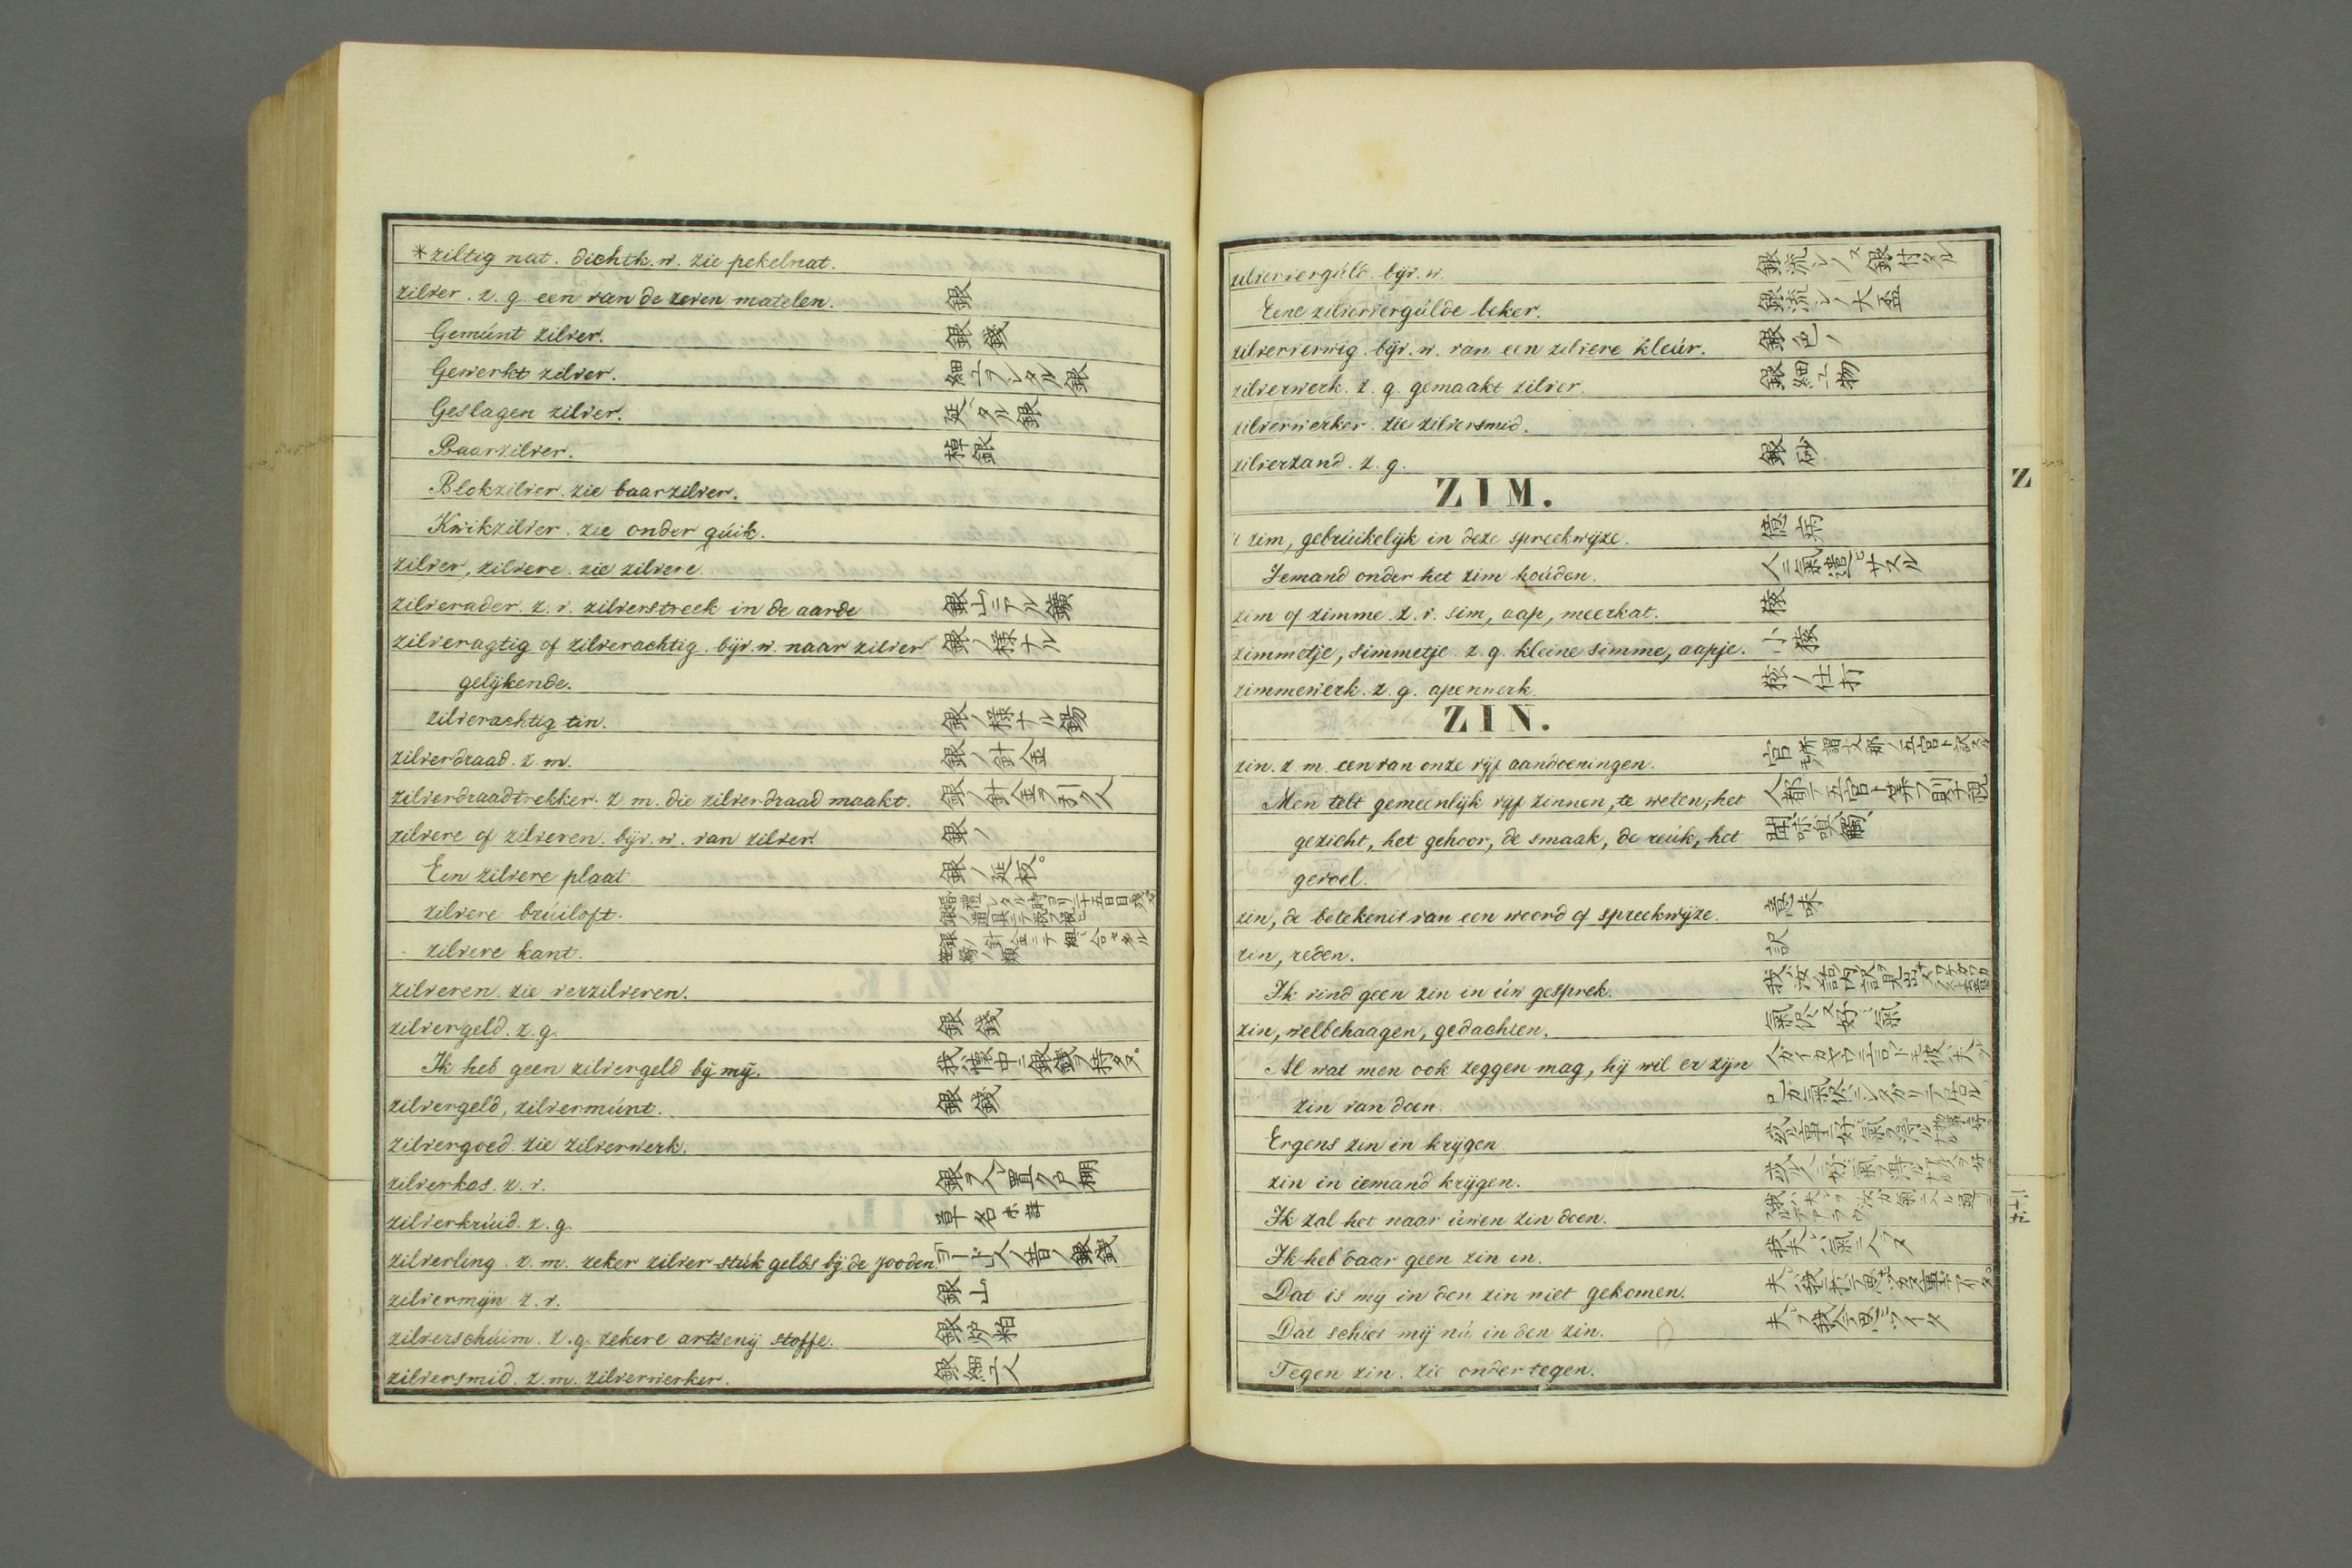 *ziltig nat. dichtk. w. zie pekelnat.
zilver. z. g. een van de zeven matelen. 銀
Gemúnt zilver. 銀錢
Gewerkt zilver. 細工シタル銀
Geslagen zilver. 延タル銀
Baarzilver. 棹銀
Blokzilver. zie baarzilver.
Kwikzilver. zie onder qúik.
zilver, zilvere. zie zilvere.
zilverader. z. v. zilverstreek in de aarde 銀山ニアル鑛
zilveragtig of zilverachtig. bijv. w. naar zilver 銀ノ様ナル
gelijkende.
zilverachtig tin. 銀ノ様ナル錫
zilverdraad. z. m. 銀ノ針金
zilverdraadtrekker. z. m. die zilverdraad maakt. 銀ノ針金ヲ引ク人
zilvere of zilveren. bijv. w. van zilver. 銀ノ
Een zilvere plaat 銀ノ延板
zilvere brúiloft.
zilvere kant.
zilveren. zie verzilveren.
zilvergeld. z. g. 銀錢
Ik heb geen zilvergeld bij mij. 我懐中ニ銀錢ヲ持タズ
zilvergeld, zilvermúnt. 銀錢
zilvergoed. zie zilverwerk.
zilverkas. z. v. 銀ヲ入レ置ク戸棚
zilverkrúid. z. g. 草名
zilverling. z. m. zeker zilver stúk gelds bij de jooden. 人ノ昔ノ銀錢
zilvermijn. z. v. 銀山
zilverschúim. z. g. zekere artzenij stoffe. 銀炉粕
zilversmid. z. m. zilverwerker. 銀細工人
zilververgúld. bijv. w. 銀流シノ 又 銀付タル
Eene zilververgúlde beker. 銀流シノ大盃
zilververwig. bijv. w. van een zilvere kleúr. 銀色ノ
zilverwerk. z. g. gemaakt zilver. 銀細工物
zilverwerker. zie zilversmid.
zilverzand. z. g. 銀砂
ZIM.
Z
zim, gebrúikelijk in deze spreekwijze. 臆病
Iemand onder het zim hoúden. 人ニ氣遣ヒサスル
zim of zimme. z. v. sim, aap, meerkat. 猿
zimmetje, simmetje. z. g. kleine simme, aapje. 小猿
zimmewerk. z. g. apenwerk. 猿ノ仕打
ZIN.
zin. z. m. een van onze vijf aandoeningen.
Men telt gemeenlijk vijf zinnen, te weten, het
gezicht, het gehoor, de smaak, de reúk, het
gevoel.
zin, de betekenis van een woord of spreekwijze. 意味
zin, reden. 訳
Ik vind geen zin in úw gesprek.
zin, welbehaagen, gedachten.
Al wat men ook zeggen mag, hij wil er zijn
zin van doen.
Ergens zin in krijgen.
zin in iemand krijgen.
Ik zal het naar úwen zin doen.
Ik heb daar geen zin in. 我夫ハ氣ニ入ラヌ
Dat is mij in den zin niet gekomen.
Dat schiet mij nú in den zin.
Tegen zin. zie onder tegen.